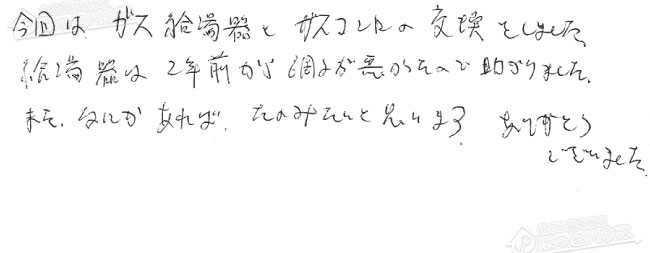 今回は ガス給湯器とガスコンロの交換をしました。
給湯器は2年前から調子が悪かったので助かりました。
また、なにかあれば、たのみたいと思います。 ありがとう
ございました。